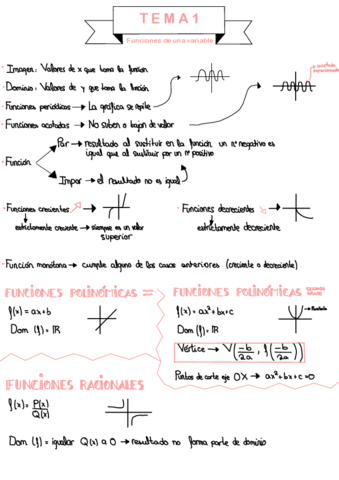 TEMA 1
Funciones de una variable
· Imagen: Valores de x que toma la función
· Dominio: Valores de y que toma la función
· Funciones periódicas → La gráfica se repite
· Funciones acotadas → No suben o bajan de valor
· Función
Par → resultado al sustituir en la función un nº negativo es
igual que al sustituir por un nº positivo
Impar → el resultado no es igual
· Funciones crecientes
estrictamente creciente → siempre es un valor
superior
· Funciones decrecientes
estrictamente decreciente
· Función monótona → cumple alguno de los casos anteriores (creciente o decreciente)
FUNCIONES POLINÓMICAS =
f(x) = ax+b
Dom (f) = ℝ
FUNCIONES POLINÓMICAS SEGUNDO GRADO
f(x) = ax²+bx+c
→ Parábola
Dom (f) = ℝ
Vértice → V(-b/2a , f(-b/2a))
Puntos de corte eje OX → ax²+bx+c=0
FUNCIONES RACIONALES
f(x) = P(x)/Q(x)
Dom (f) = igualar Q(x) a 0 → resultado no forma parte de dominio